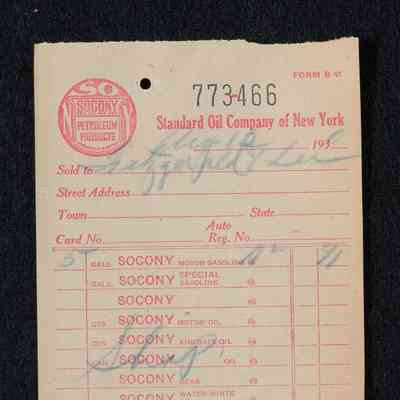 FORM B 41
SO
SOCONY
NY
PETROLEUM
PRODUCTS
773-466
Standard Oil Company of New York
193
Sold to Fitzgerald & Lee
Street Address
Town State
Auto
Card No. Reg. No.
5 GALS. SOCONY MOTOR GASOLINE @
GALS. SOCONY SPECIAL GASOLINE @
SOCONY @
QTS. SOCONY MOTOR OIL @
QTS. SOCONY AIRCRAFT OIL @
CAN OIL @
SOCONY GEAR @
SOCONY WATER-WHITE